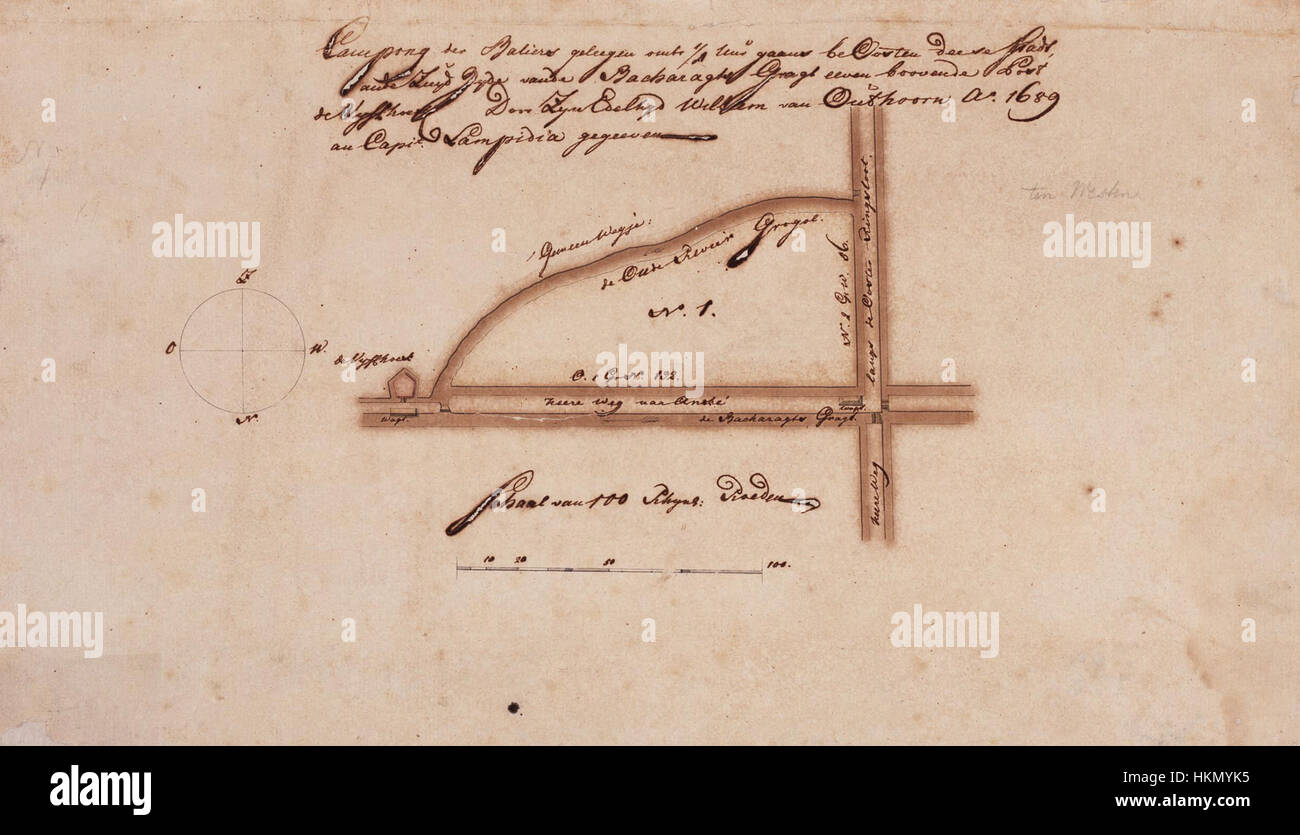 Campong der Baliers geleegen omtr. 1/2 uur gaans beOosten deese Stadt
aande Zuyd Zyde vande Bacharagts Gragt eeven boovende Post
de Vyffhoek Door Zyn Edelhyd Willem van Outhoorn Ao. 1689
an Capit. Lampidia gegeeven
ten Westen
't Gemeen Wegje:
de Oude Rivier Grogol.
No. 1.
langs de Ooster Ringsloot
Z
O
W.
N.
de Vyffhoek
132.
heere Weg naar
Wagt.
de Bacharagts Gragt.
heere Weg
Schaal van 100 Rhynl: Roeden
10 20 50 100.
alamy
a
alamy
Image ID: HKMYK5
www.alamy.com